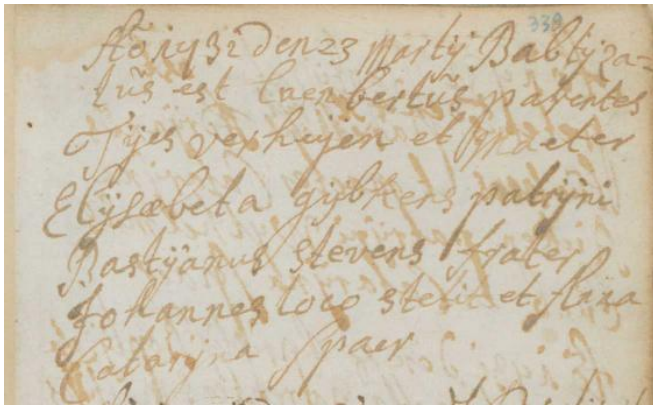 339
Ao 1732 den 23 Martij Babtyza=
tus est Lambertus parentes
Tijes verheijen et Maeter
Elijsabeta gijbkens patrijni
Bastijanus stevens frater
Johannes loco stetit et
Catarijna Spaer